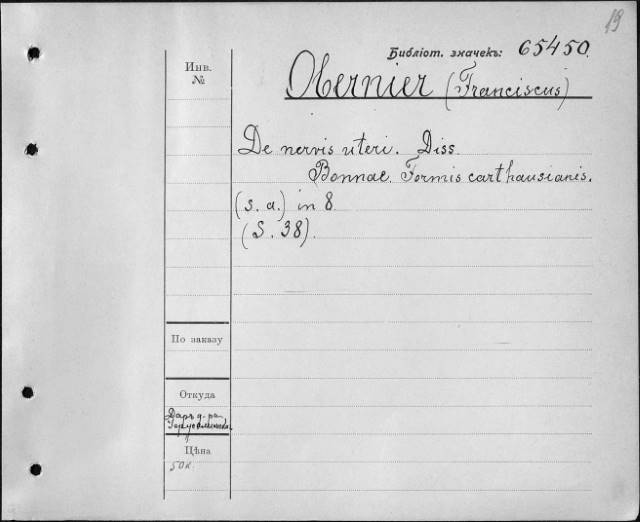 19
Библіот. значекъ: 65450.
Инв.
№
Obernier (Franciscus)
De nervis uteri. Diss.
Bonnae. Formis carthausianis.
(s. a.) in 8
(S. 38).
По заказу
Откуда
Даръ д-ра
Цѣна
50 к.